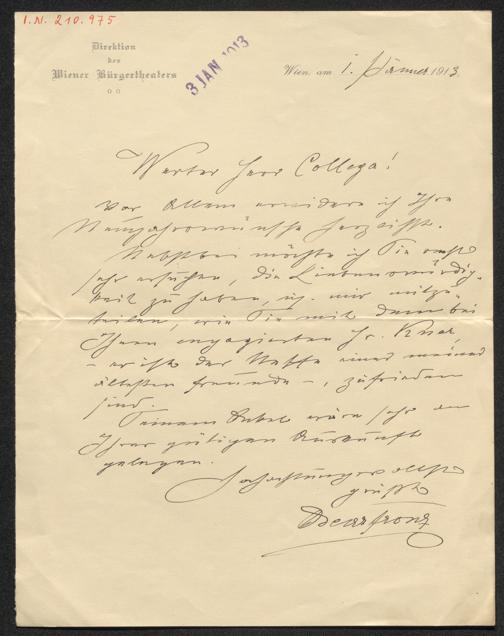 I.N. 210.975
Direktion
des
Wiener Bürgertheaters
3 JAN 1913
Wien, am 1. Jänner 1913
Werter Herr Collega!
Vor Allem erwidere ich Ihre
Neujahrswünsche herzlichst.
Nebstbei möchte ich Sie
sehr ersuchen, die Liebenswürdig-
keit zu haben, mir mitzu-
teilen, wie Sie mit dem bei
Ihnen engagierten Hr.
– er ist der Neffe eines meiner
ältesten Freunde –, zufrieden
sind.
Seinem Onkel wäre sehr an
Ihrer gütigen Auskunft
gelegen.
Hochachtungsvollst
grüßt